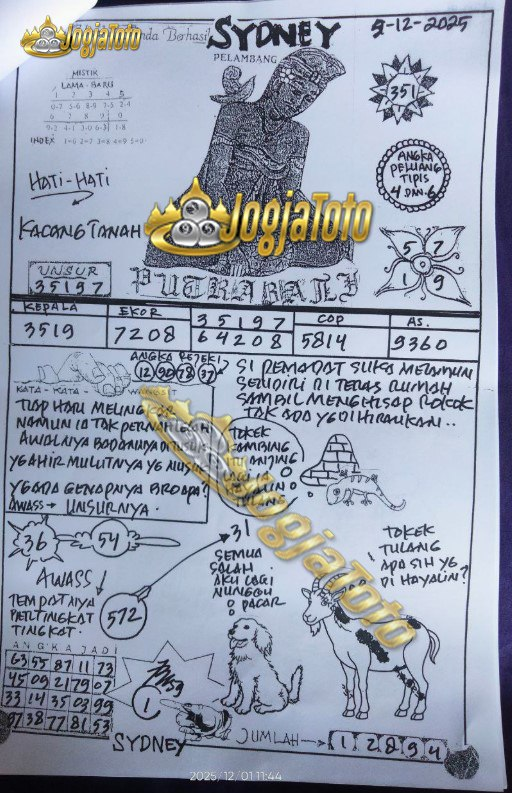 JogjaToto
nda Berhasil
SYDNEY
PELAMBANG
5-12-2025
MISTIK
LAMA - BARU
1 2 3 4 5
0-7 5-6 8-9 3-5 2-4
6 7 8 9 0
9-2 4-1 3-0 6-3 1-8
INDEX 1=6 2=7 3=8 4=9 5=0
351
ANGKA
PELUANG
TIPIS
4 DAN 6
HATI-HATI
KACANG TANAH
JogjaToto
5 7
1 9
UNSUR
35197
PUTRA BALI
KEPALA EKOR 35197 COP AS.
3519 7208 64208 5814 9360
ANGKA REJEKI
12 90 78 37
SI PEMADAT SUKA MELAMUN
SENDIRI DI TERAS RUMAH
SAMBIL MENGHISAP ROKOK
TAK ADA YG DI HIRAUKAN..
KATA - KATA - WANGSIT
TIAP HARI MELING
NAMUN IA TAK PERNAH
AWALNYA BADANNYA
YG AHIR MULUTNYA YG
YG ADA GENAPNYA BROAPA?
AWASS → UNSURNYA.
TOKEK
KAMBING
JogjaToto
36 54
AWASS
TEMPATNYA
BERTINGKAT
TINGKAT.
572
31
SEMUA
SALAH
AKU LAGI
NUNGGU
PACAR
TOKEK
TULANG
APA SIH YG
DI HAYALIN?
ANGKA JADI
63 55 87 11 73
45 09 21 79 07
33 14 35 03 99
97 38 77 81 53
1
SYDNEY
JUMLAH → 1 2 8 9 4
2025/12/01 11:44